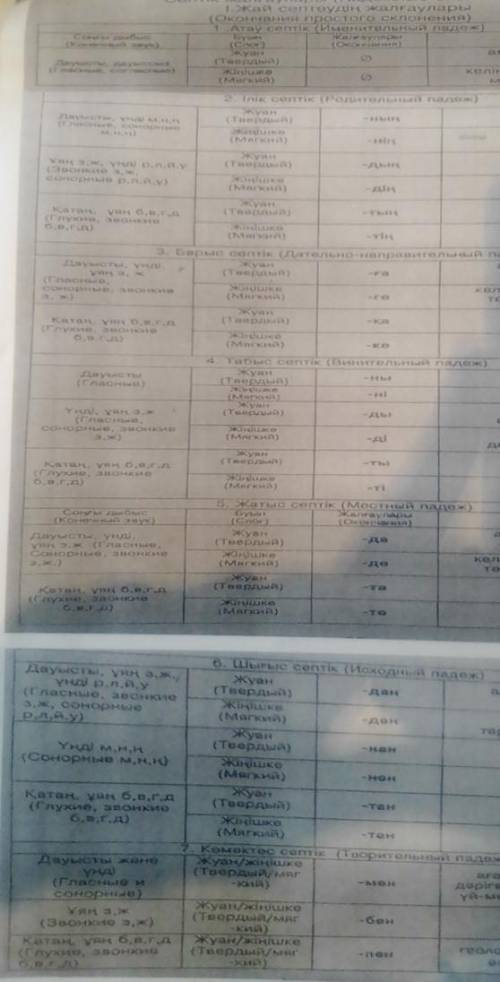 1.Жай септеудің жалғаулары
(Окончания простого склонения)
1. Атау септік (Именительный падеж)
Соңғы дыбыс
(Конечный звук)
Буын
(Слог)
Жалғаулары
(Окончания)
Дауысты, дауыссыз
(Гласные, согласные)
Жуан
(Твердый)
∅
Жіңішке
(Мягкий)
∅
2. Ілік септік (Родительный падеж)
Дауысты, үнді м,н,ң
(Гласные, сонорные
м,н,ң)
Жуан
(Твердый)
-ның
Жіңішке
(Мягкий)
-нің
Ұяң з,ж, үнді р,л,й,у
(Звонкие з,ж,
сонорные р,л,й,у)
Жуан
(Твердый)
-дың
Жіңішке
(Мягкий)
-дің
Қатаң, ұяң б,в,г,д
(Глухие, звонкие
б,в,г,д)
Жуан
(Твердый)
-тың
Жіңішке
(Мягкий)
-тің
3. Барыс септік (Дательно-направительный
Дауысты, үнді,
ұяң з, ж
(Гласные,
сонорные, звонкие
з, ж)
Жуан
(Твердый)
-ға
Жіңішке
(Мягкий)
-ге
Қатаң, ұяң б,в,г,д
(Глухие, звонкие
б,в,г,д)
Жуан
(Твердый)
-қа
Жіңішке
(Мягкий)
-ке
4. Табыс септік (Винительный падеж)
Дауысты
(Гласные)
Жуан
(Твердый)
-ны
Жіңішке
(Мягкий)
-ні
Үнді, ұяң з,ж
(Гласные,
сонорные, звонкие
з,ж)
Жуан
(Твердый)
-ды
Жіңішке
(Мягкий)
-ді
Қатаң, ұяң б,в,г,д
(Глухие, звонкие
б,в,г,д)
Жуан
(Твердый)
-ты
Жіңішке
(Мягкий)
-ті
5. Жатыс септік (Местный падеж)
Соңғы дыбыс
(Конечный звук)
Буын
(Слог)
Жалғаулары
(Окончания)
Дауысты, үнді,
ұяң з,ж (Гласные,
Сонорные, звонкие
з,ж.)
Жуан
(Твердый)
-да
Жіңішке
(Мягкий)
-де
Қатаң, ұяң б,в,г,д
(Глухие, звонкие
б,в,г,д)
Жуан
(Твердый)
-та
Жіңішке
(Мягкий)
-те
6. Шығыс септік (Исходный падеж)
Дауысты, ұяң з,ж,,
үнді р,л,й,у
(Гласные, звонкие
з,ж, сонорные
р,л,й,у)
Жуан
(Твердый)
-дан
Жіңішке
(Мягкий)
-ден
Үнді м,н,ң
(Сонорные м,н,ң)
Жуан
(Твердый)
-нан
Жіңішке
(Мягкий)
-нен
Қатаң, ұяң б,в,г,д
(Глухие, звонкие
б,в,г,д)
Жуан
(Твердый)
-тан
Жіңішке
(Мягкий)
-тен
7. Көмектес септік (Творительный падеж
Дауысты және
үнді
(Гласные и
сонорные)
Жуан/жіңішке
(Твердый/мяг
-кий)
-мен
Ұяң з,ж
(Звонкие з,ж)
Жуан/жіңішке
(Твердый/мяг
-кий)
-бен
Қатаң, ұяң б,в,г,д
(Глухие, звонкие
б,в,г,д)
Жуан/жіңішке
(Твердый/мяг
-кий)
-пен